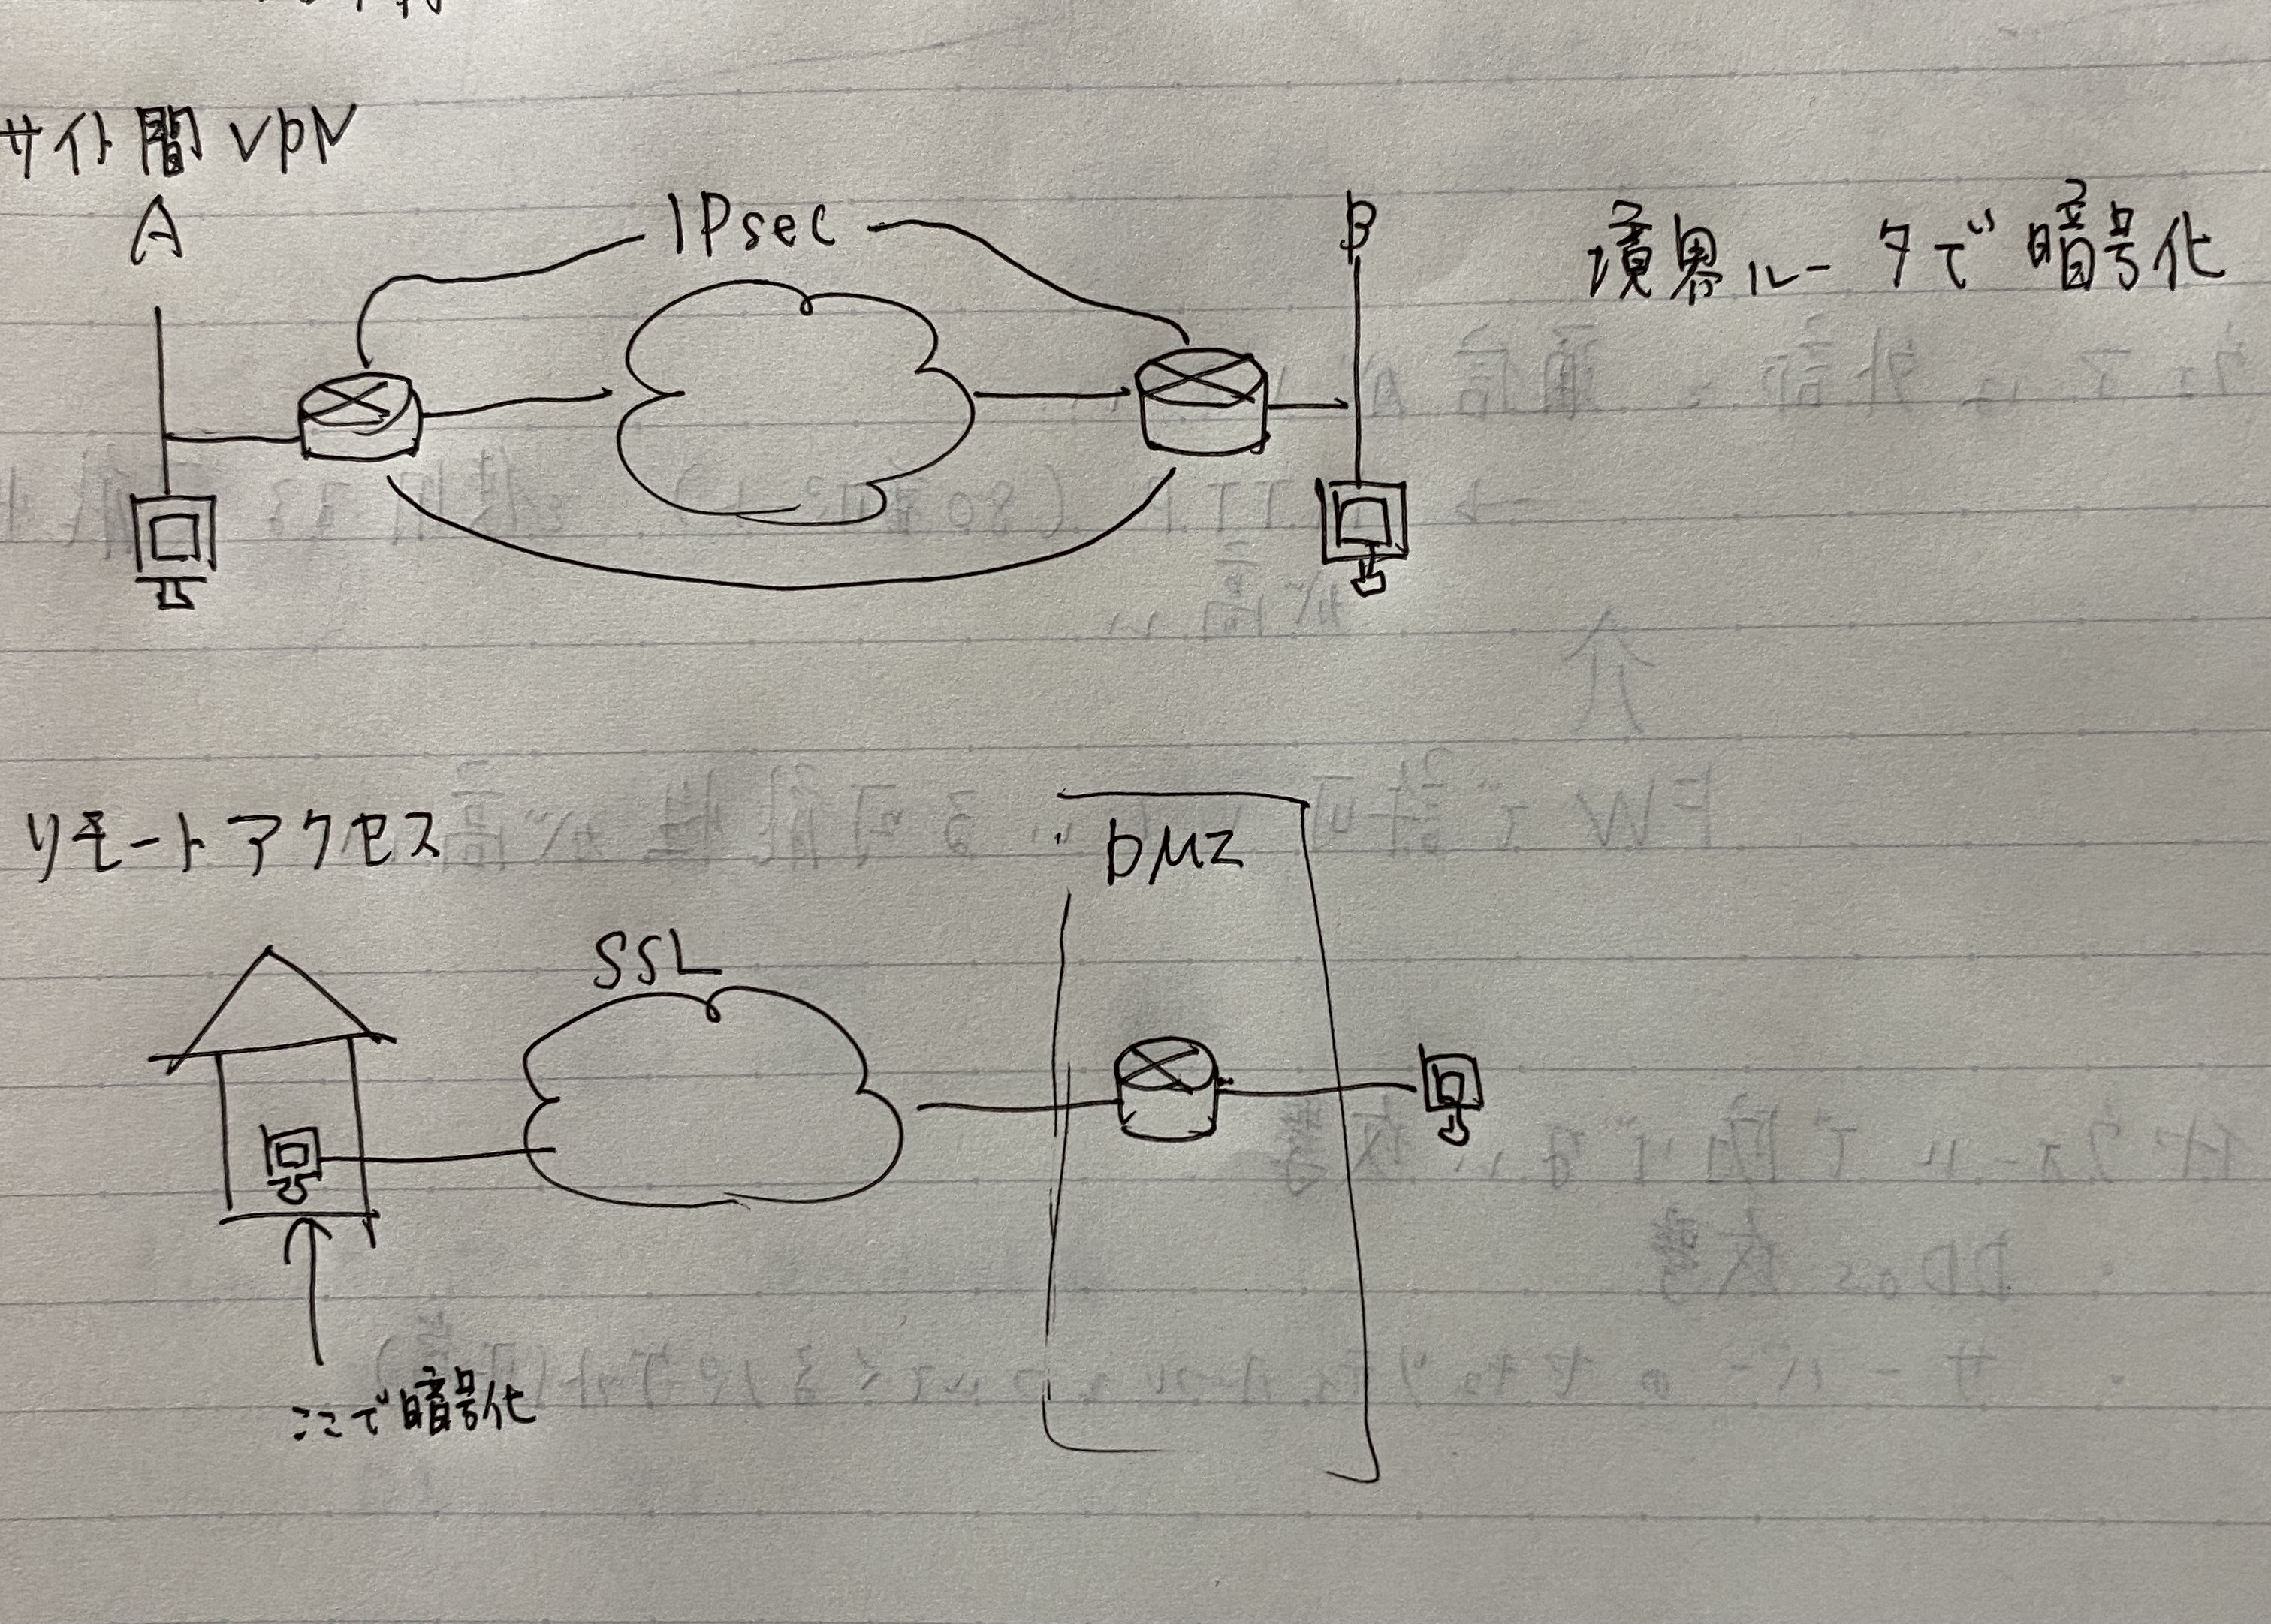 サイト間 VPN
A
IPsec
B
境界ルータで暗号化
リモートアクセス
DMZ
SSL
ここで暗号化